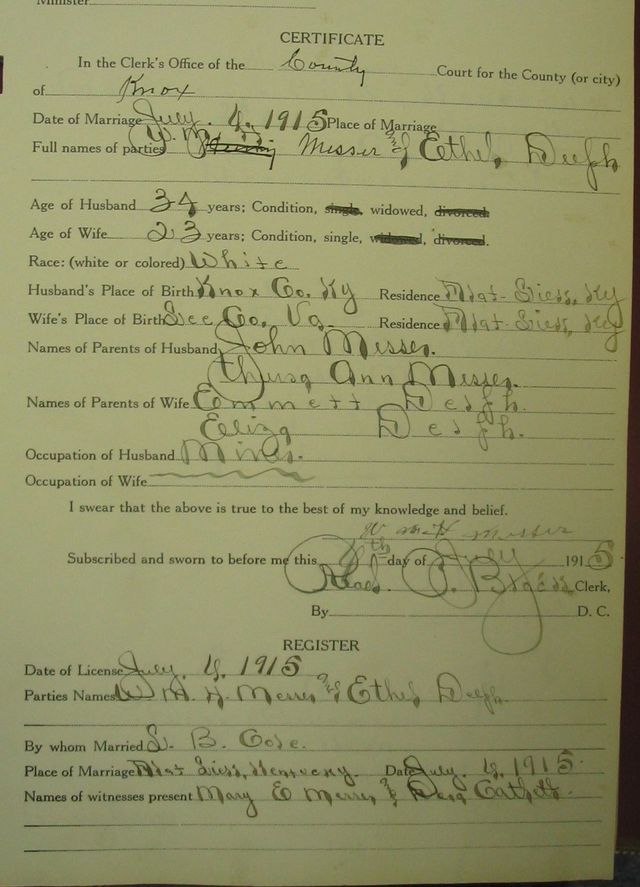 Minister
CERTIFICATE
In the Clerk's Office of the County Court for the County (or city)
of Knox
Date of Marriage July. 4, 1915 Place of Marriage
Full names of parties W. M. Messer & Ethel Delph
Age of Husband 34 years; Condition, single, widowed, divorced.
Age of Wife 23 years; Condition, single, widowed, divorced.
Race: (white or colored) White
Husband's Place of Birth Knox Co. Ky Residence Flat- Ky
Wife's Place of Birth Lee Co. Va. Residence Flat- Ky
Names of Parents of Husband John Messer.
Ann Messer.
Names of Parents of Wife Emmett Delph.
Eliza Delph.
Occupation of Husband
Occupation of Wife
I swear that the above is true to the best of my knowledge and belief.
W M H Messer
Subscribed and sworn to before me this day of July 1915
Read. P. Clerk,
By D. C.
REGISTER
Date of License July. 4, 1915
Parties Names W M. H. Messer & Ethel Delph.
By whom Married B. Cole.
Place of Marriage Flat Kentucky. Date July. 4, 1915
Names of witnesses present Mary E Messer &